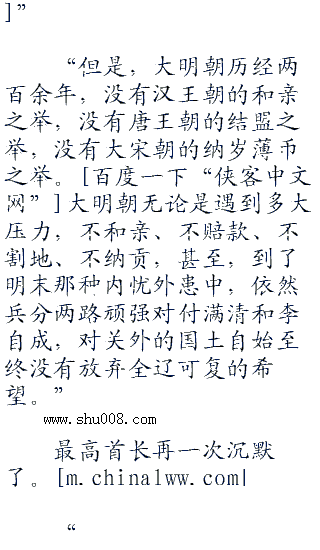 ]”
“但是，大明朝历经两
百余年，没有汉王朝的和亲
之举，没有唐王朝的结盟之
举，没有大宋朝的纳岁薄币
之举。[百度一下“侠客中文
网”]大明朝无论是遇到多大
压力，不和亲、不赔款、不
割地、不纳贡，甚至，到了
明末那种内忧外患中，依然
兵分两路顽强对付满清和李
自成，对关外的国土自始至
终没有放弃全辽可复的希
望。”
www.shu008.com
最高首长再一次沉默
了。[m.china1ww.com]
“